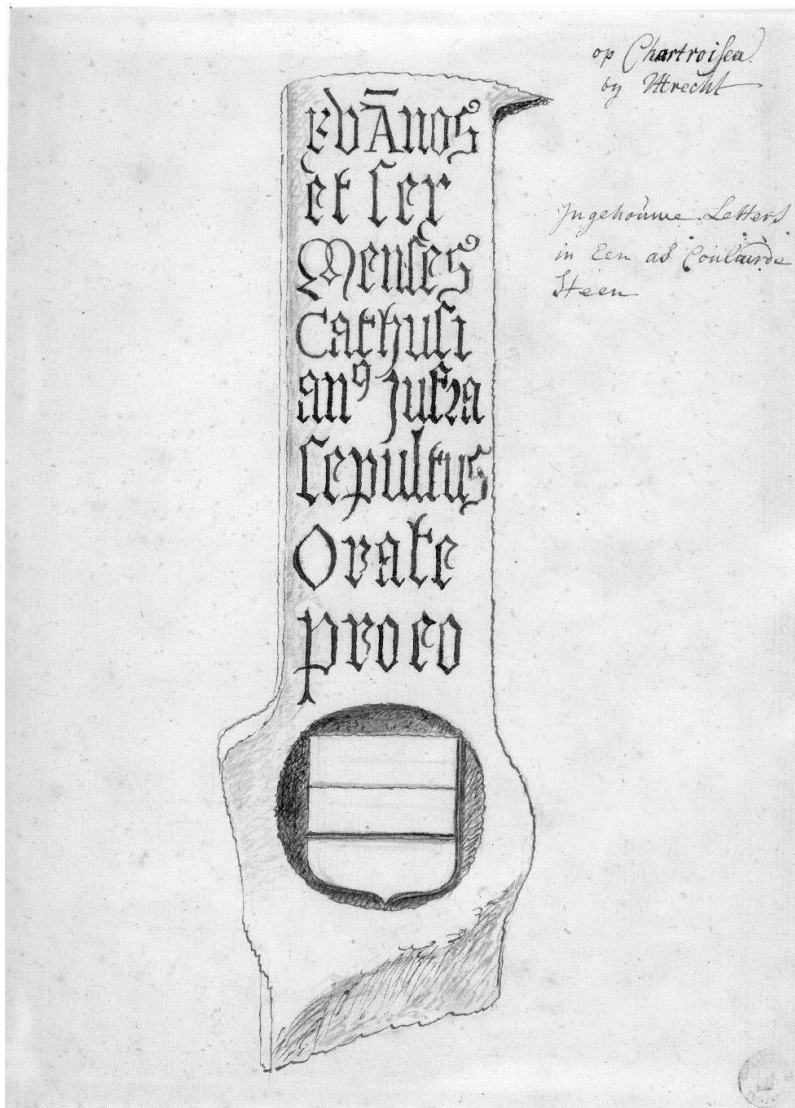 op Chartroisen
by Uttrecht
Ingehouwe Letters
in Een as Couleurde
Steen
et ser
Menses
Cathusi
an⁹ Jufra
sepultus
Orate
pro eo